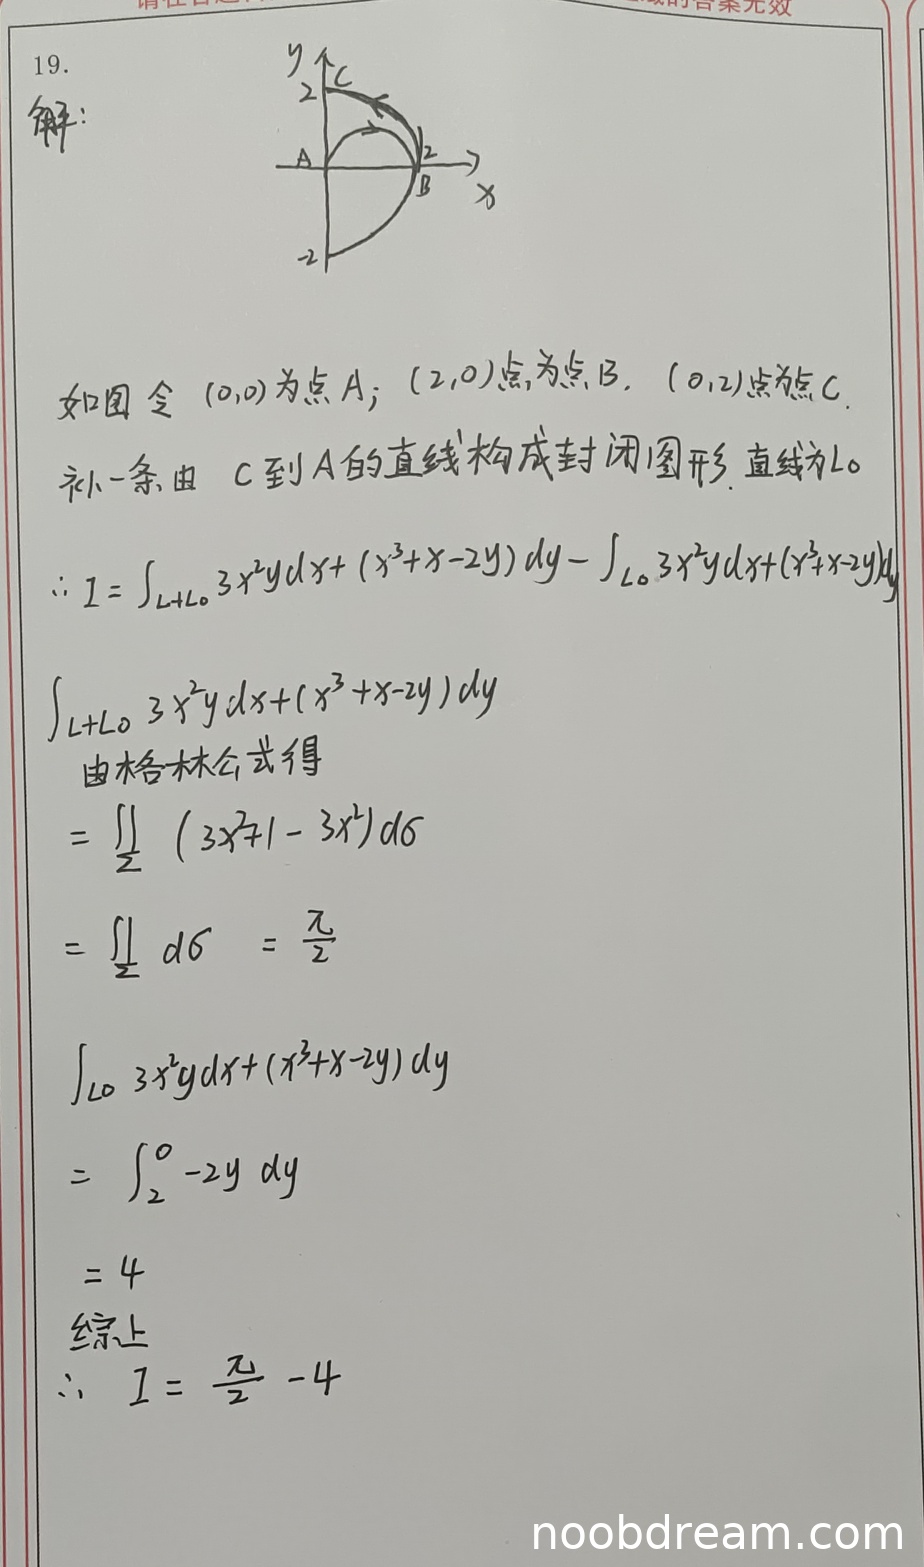 19.
解:
y
C
2
A
2
B
x
-2
如图 令 (0,0)为点A; (2,0)点为点B. (0,2)点为点C.
补一条由 C到A的直线构成封闭图形. 直线为L₀
∴ I = ∫_{L+L₀} 3x²ydx + (x³+x-2y) dy - ∫_{L₀} 3x²ydx+(x³+x-2y)dy
∫_{L+L₀} 3x²ydx+(x³+x-2y)dy
由格林公式得
= ∬_Σ (3x²+1-3x²)dσ
= ∬_Σ dσ = π/2
∫_{L₀} 3x²ydx+(x³+x-2y)dy
= ∫₂⁰ -2y dy
= 4
综上
∴ I = π/2 - 4
noobdream.com